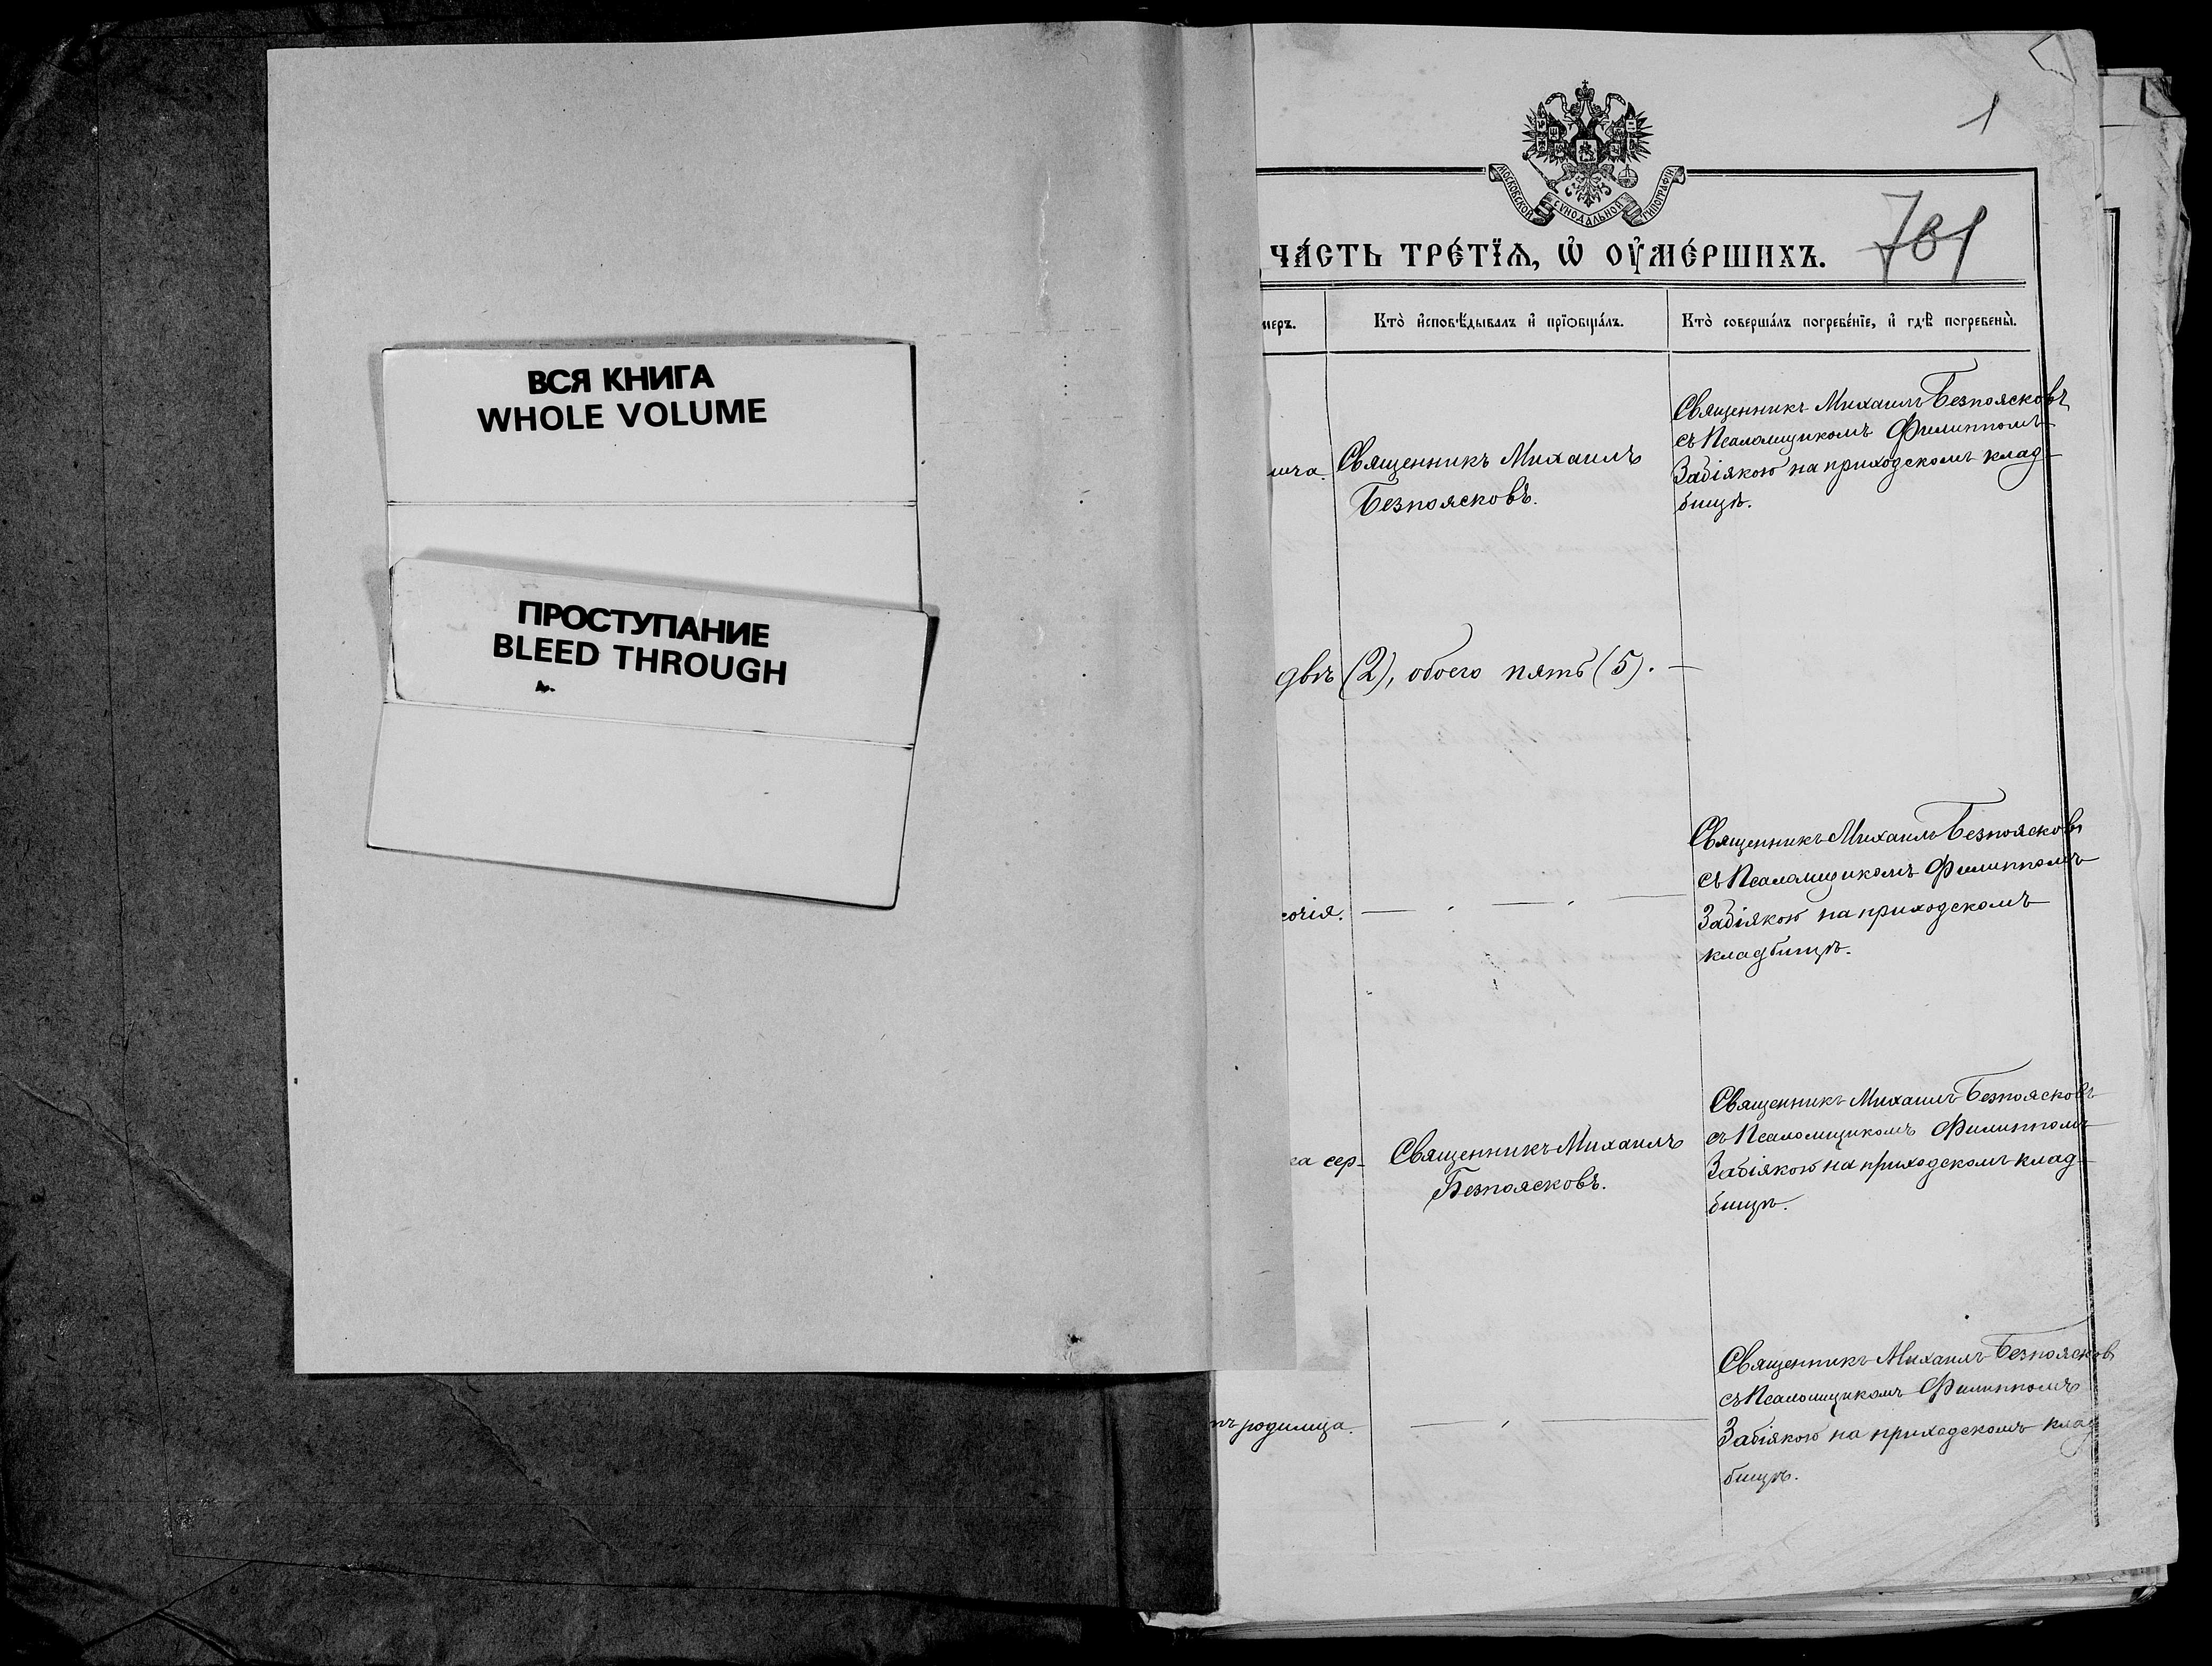 ВСЯ КНИГА
WHOLE VOLUME
ПРОСТУПАНИЕ
BLEED THROUGH
1
МОСКОВСКОЙ СУНОДАЛЬНОЙ ТИПОГРАФІИ
ЧА́СТЬ ТРЕ́ТЇѦ, Ѡ҆ ОУ҆МЕ́РШИХЪ.
меръ.
Кто̀ и҆сповѣ́дывалъ и҆ прїѡбща́лъ.
Кто̀ соверша́лъ погребе́нїе, и҆ гдѣ̀ погребены̀.
Священникъ Михаилъ
Безпоясковъ.
Священникъ Михаилъ Безпоясковъ
съ Псаломщикомъ Филиппомъ
Забіякою на приходскомъ клад-
бищѣ.
двѣ (2), обоего пять (5). —
сочія.
Священникъ Михаилъ Безпоясковъ
съ Псаломщикомъ Филиппомъ
Забіякою на приходскомъ
кладбищѣ.
ка сер-
Священникъ Михаилъ
Безпоясковъ.
Священникъ Михаилъ Безпоясковъ
съ Псаломщикомъ Филиппомъ
Забіякою на приходскомъ клад-
бищѣ.
родимца.
Священникъ Михаилъ Безпоясков
съ Псаломщикомъ Филиппомъ
Забіякою на приходскомъ клад
бищѣ.